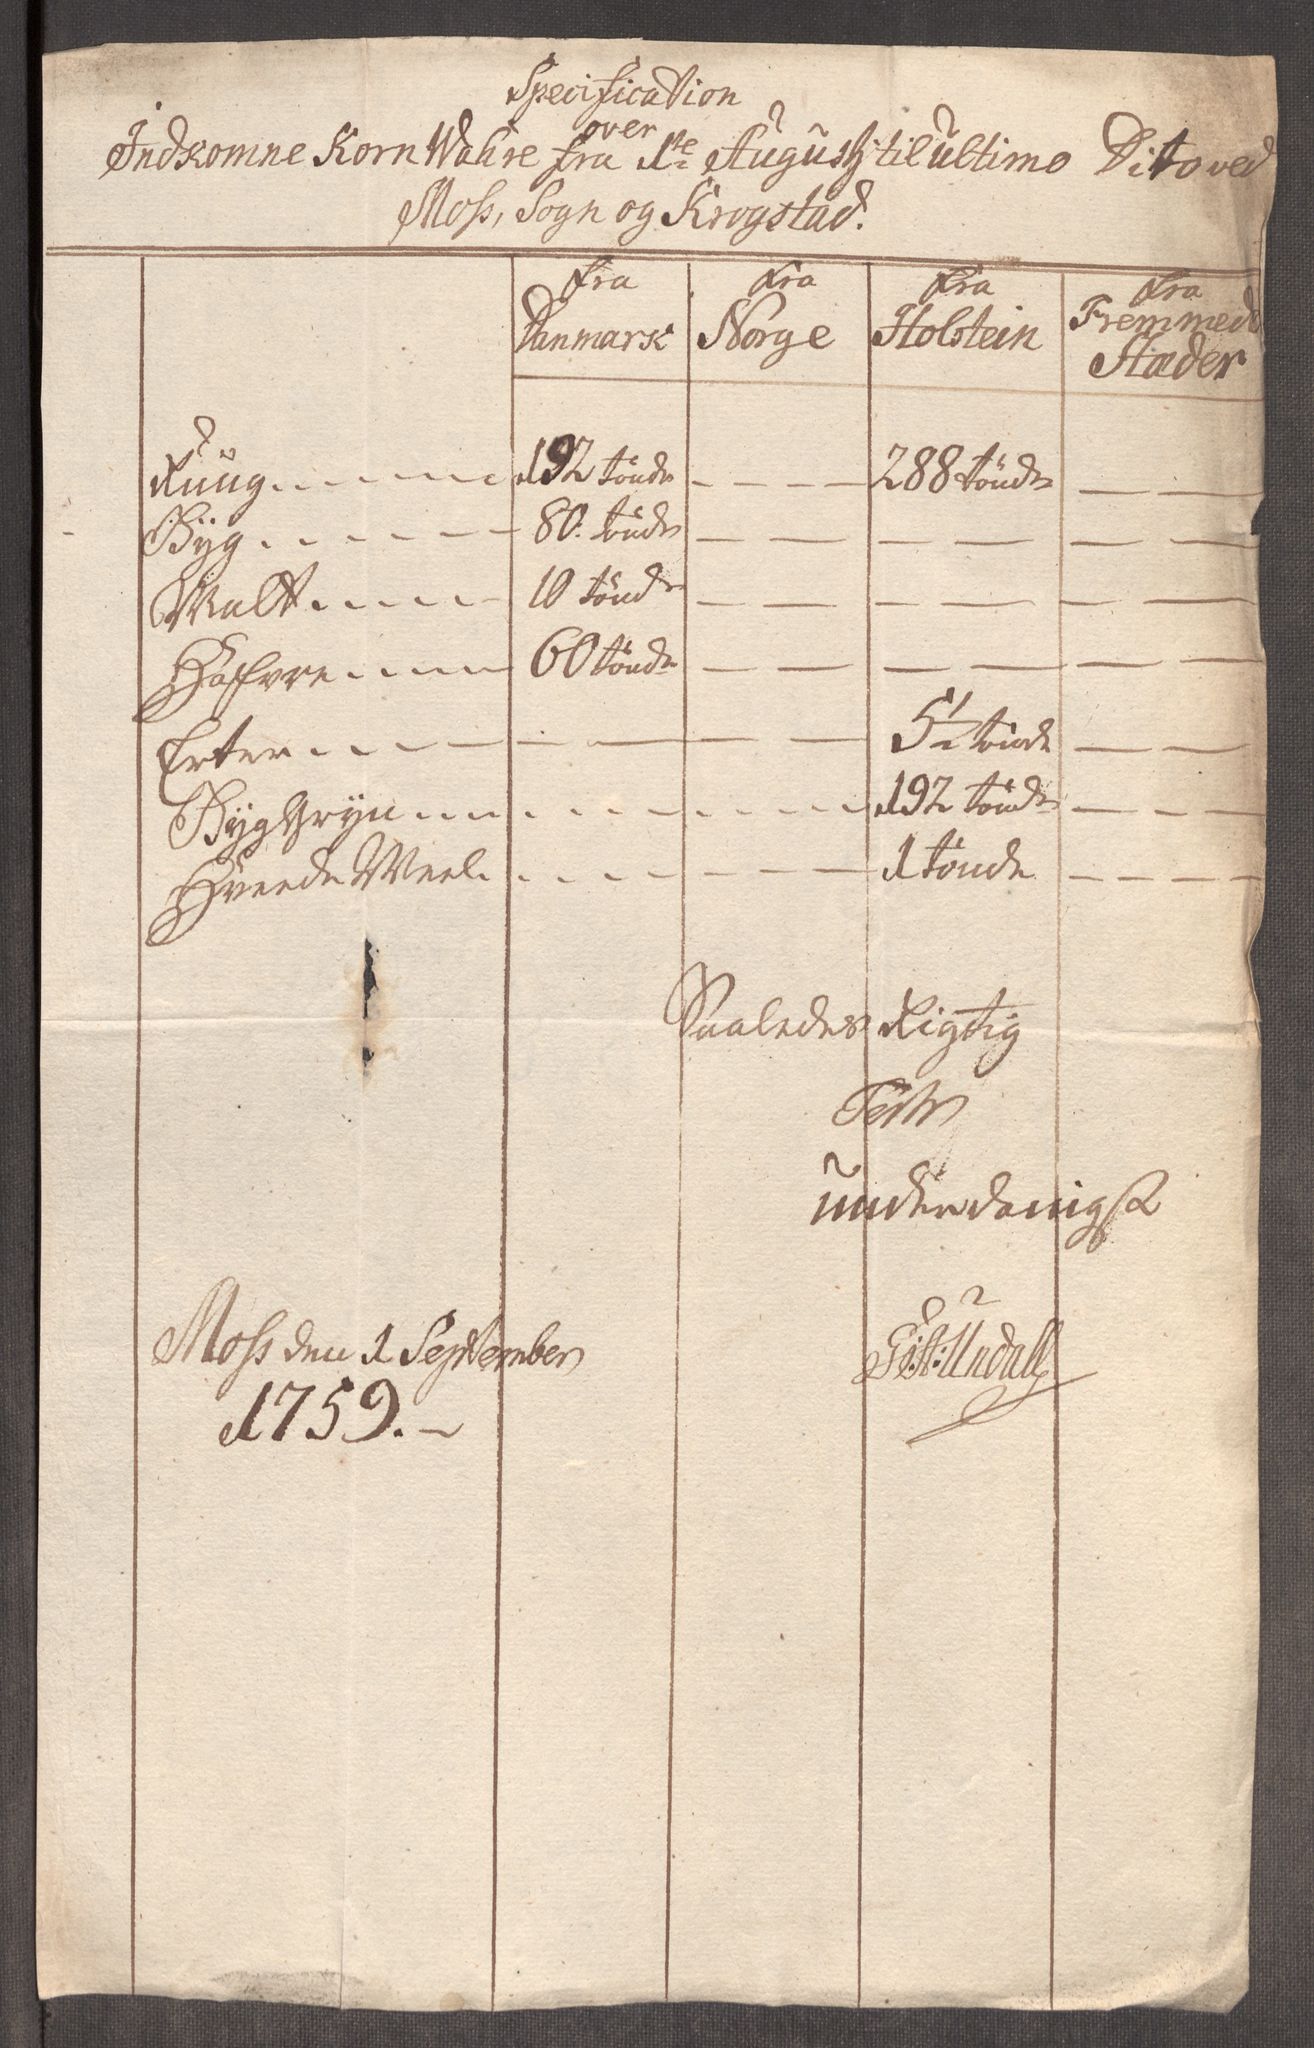 Specification
over
Indkomne Korn Wahre fra 1te Augustj til ultimo Dito ved
Moss, Sogn og Krogstad.
fra Danmark fra Norge fra Holstein fra Fremmede Stæder
Rüüg 192 tönde 288 tönde
Byg 80. tönde
Malt 10 tönde
Haffvre 60 tönde
Erter 5½ tönde
Byg Gryn 192 tönde
Hveede Meel 1 tönde
Saaledes Rigtig
Test
ünderdanigst
Moss den 1 September
1759.